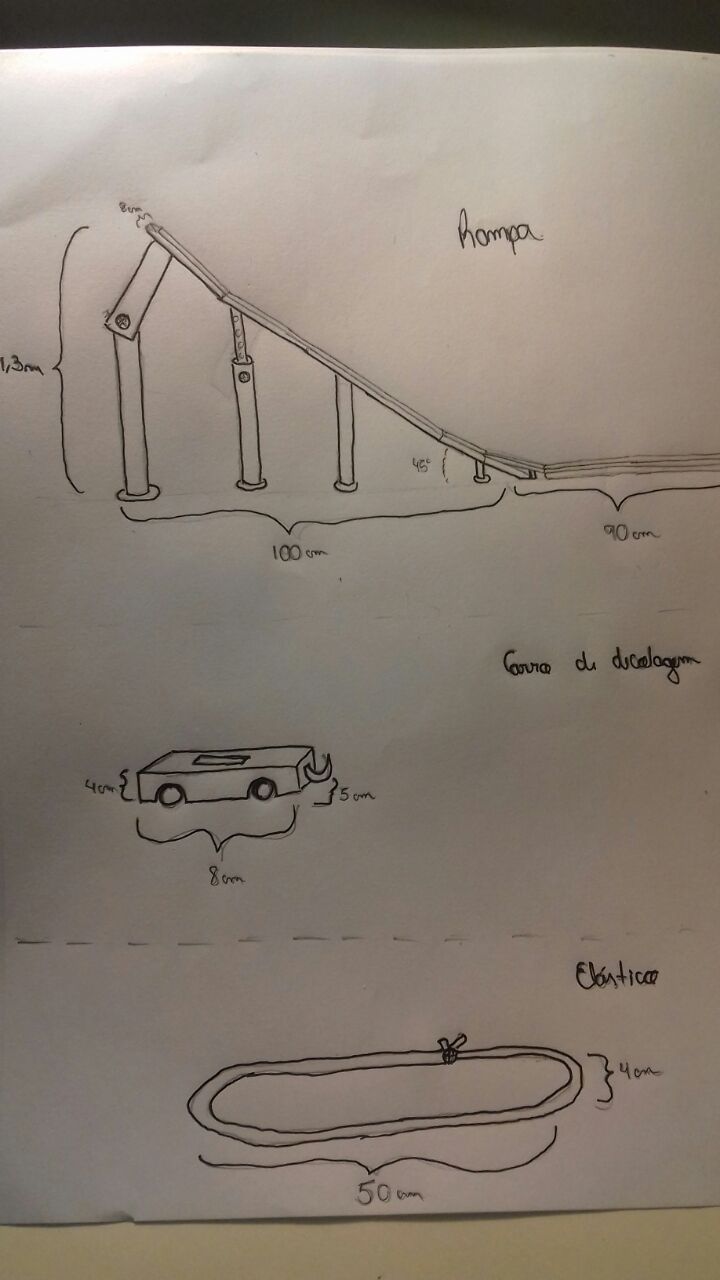 8cm
Rampa
1,3m
45°
100 cm
90 cm
Carro de decolagem
4cm
5 cm
8cm
Elástico
4cm
50 cm